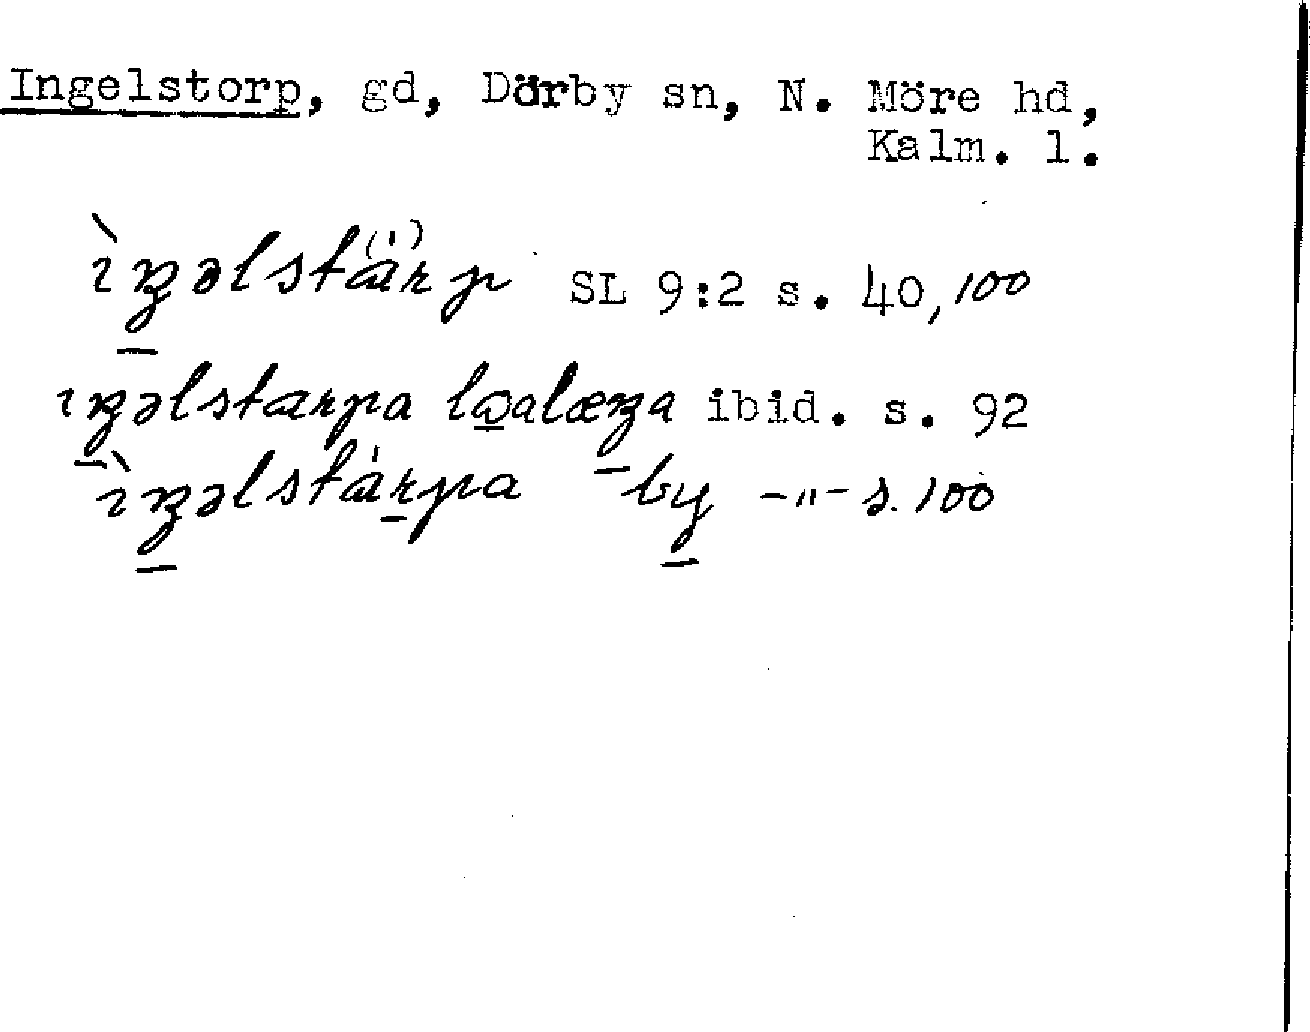 Ingelstorp, gd, Dörby sn, N. Möre hd,
Kalm. l.
ìŋəlstȧrp SL 9:2 s. 40, 100
ıŋəlstarpa ibid. s. 92
ìŋəlstȧrpa by -"- s. 100